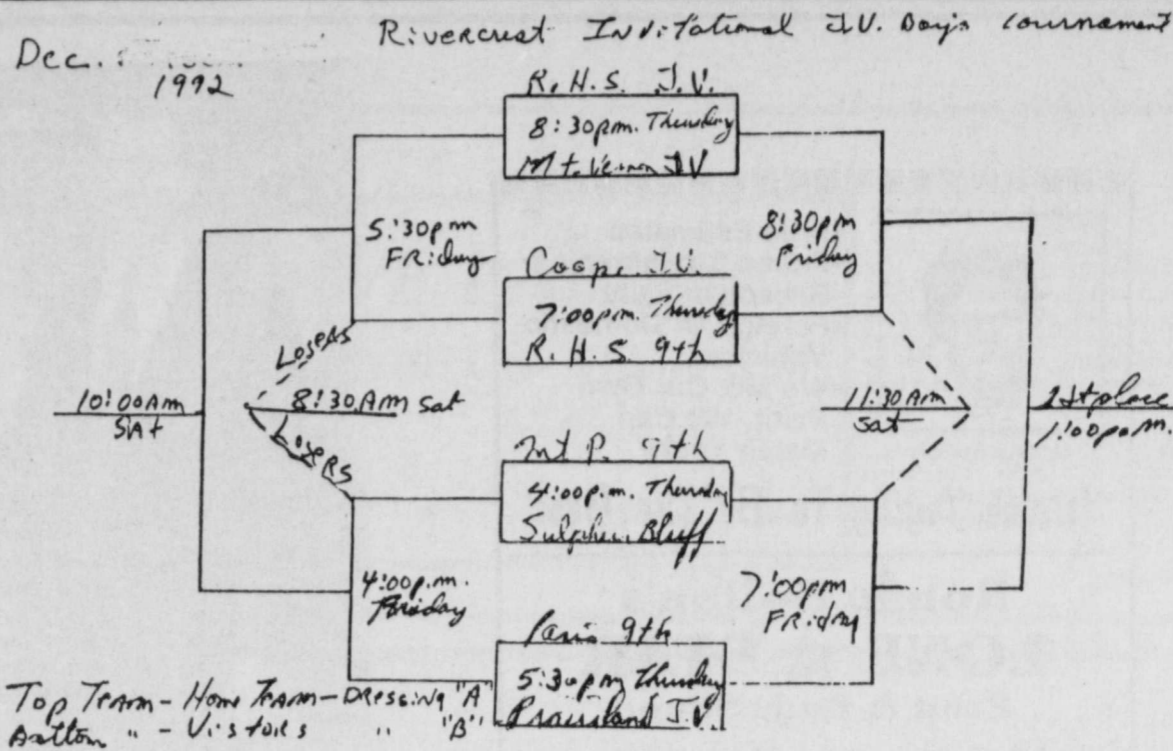 Rivercrest Invitational J.V. Boys Tournament
Dec.
1992
R.H.S. J.V.
8:30pm. Thursday
Mt. Vernon JV
5:30pm
FRiday
8:30pm
Friday
Coop. J.V.
7:00pm. Thursday
R.H.S. 9th
Losers
10:00Am
SAt
8:30Am Sat
11:30Am
Sat
1st place
1:00p.m.
Losers
Mt P. 9th
4:00p.m. Thursday
Sulphur Bluff
4:00p.m.
Friday
7:00pm
FRiday
Paris 9th
5:30pm Thursday
Prairiland J.V.
Top Team - Home Team - Dressing "A"
Bottom " - Vistors " "B"